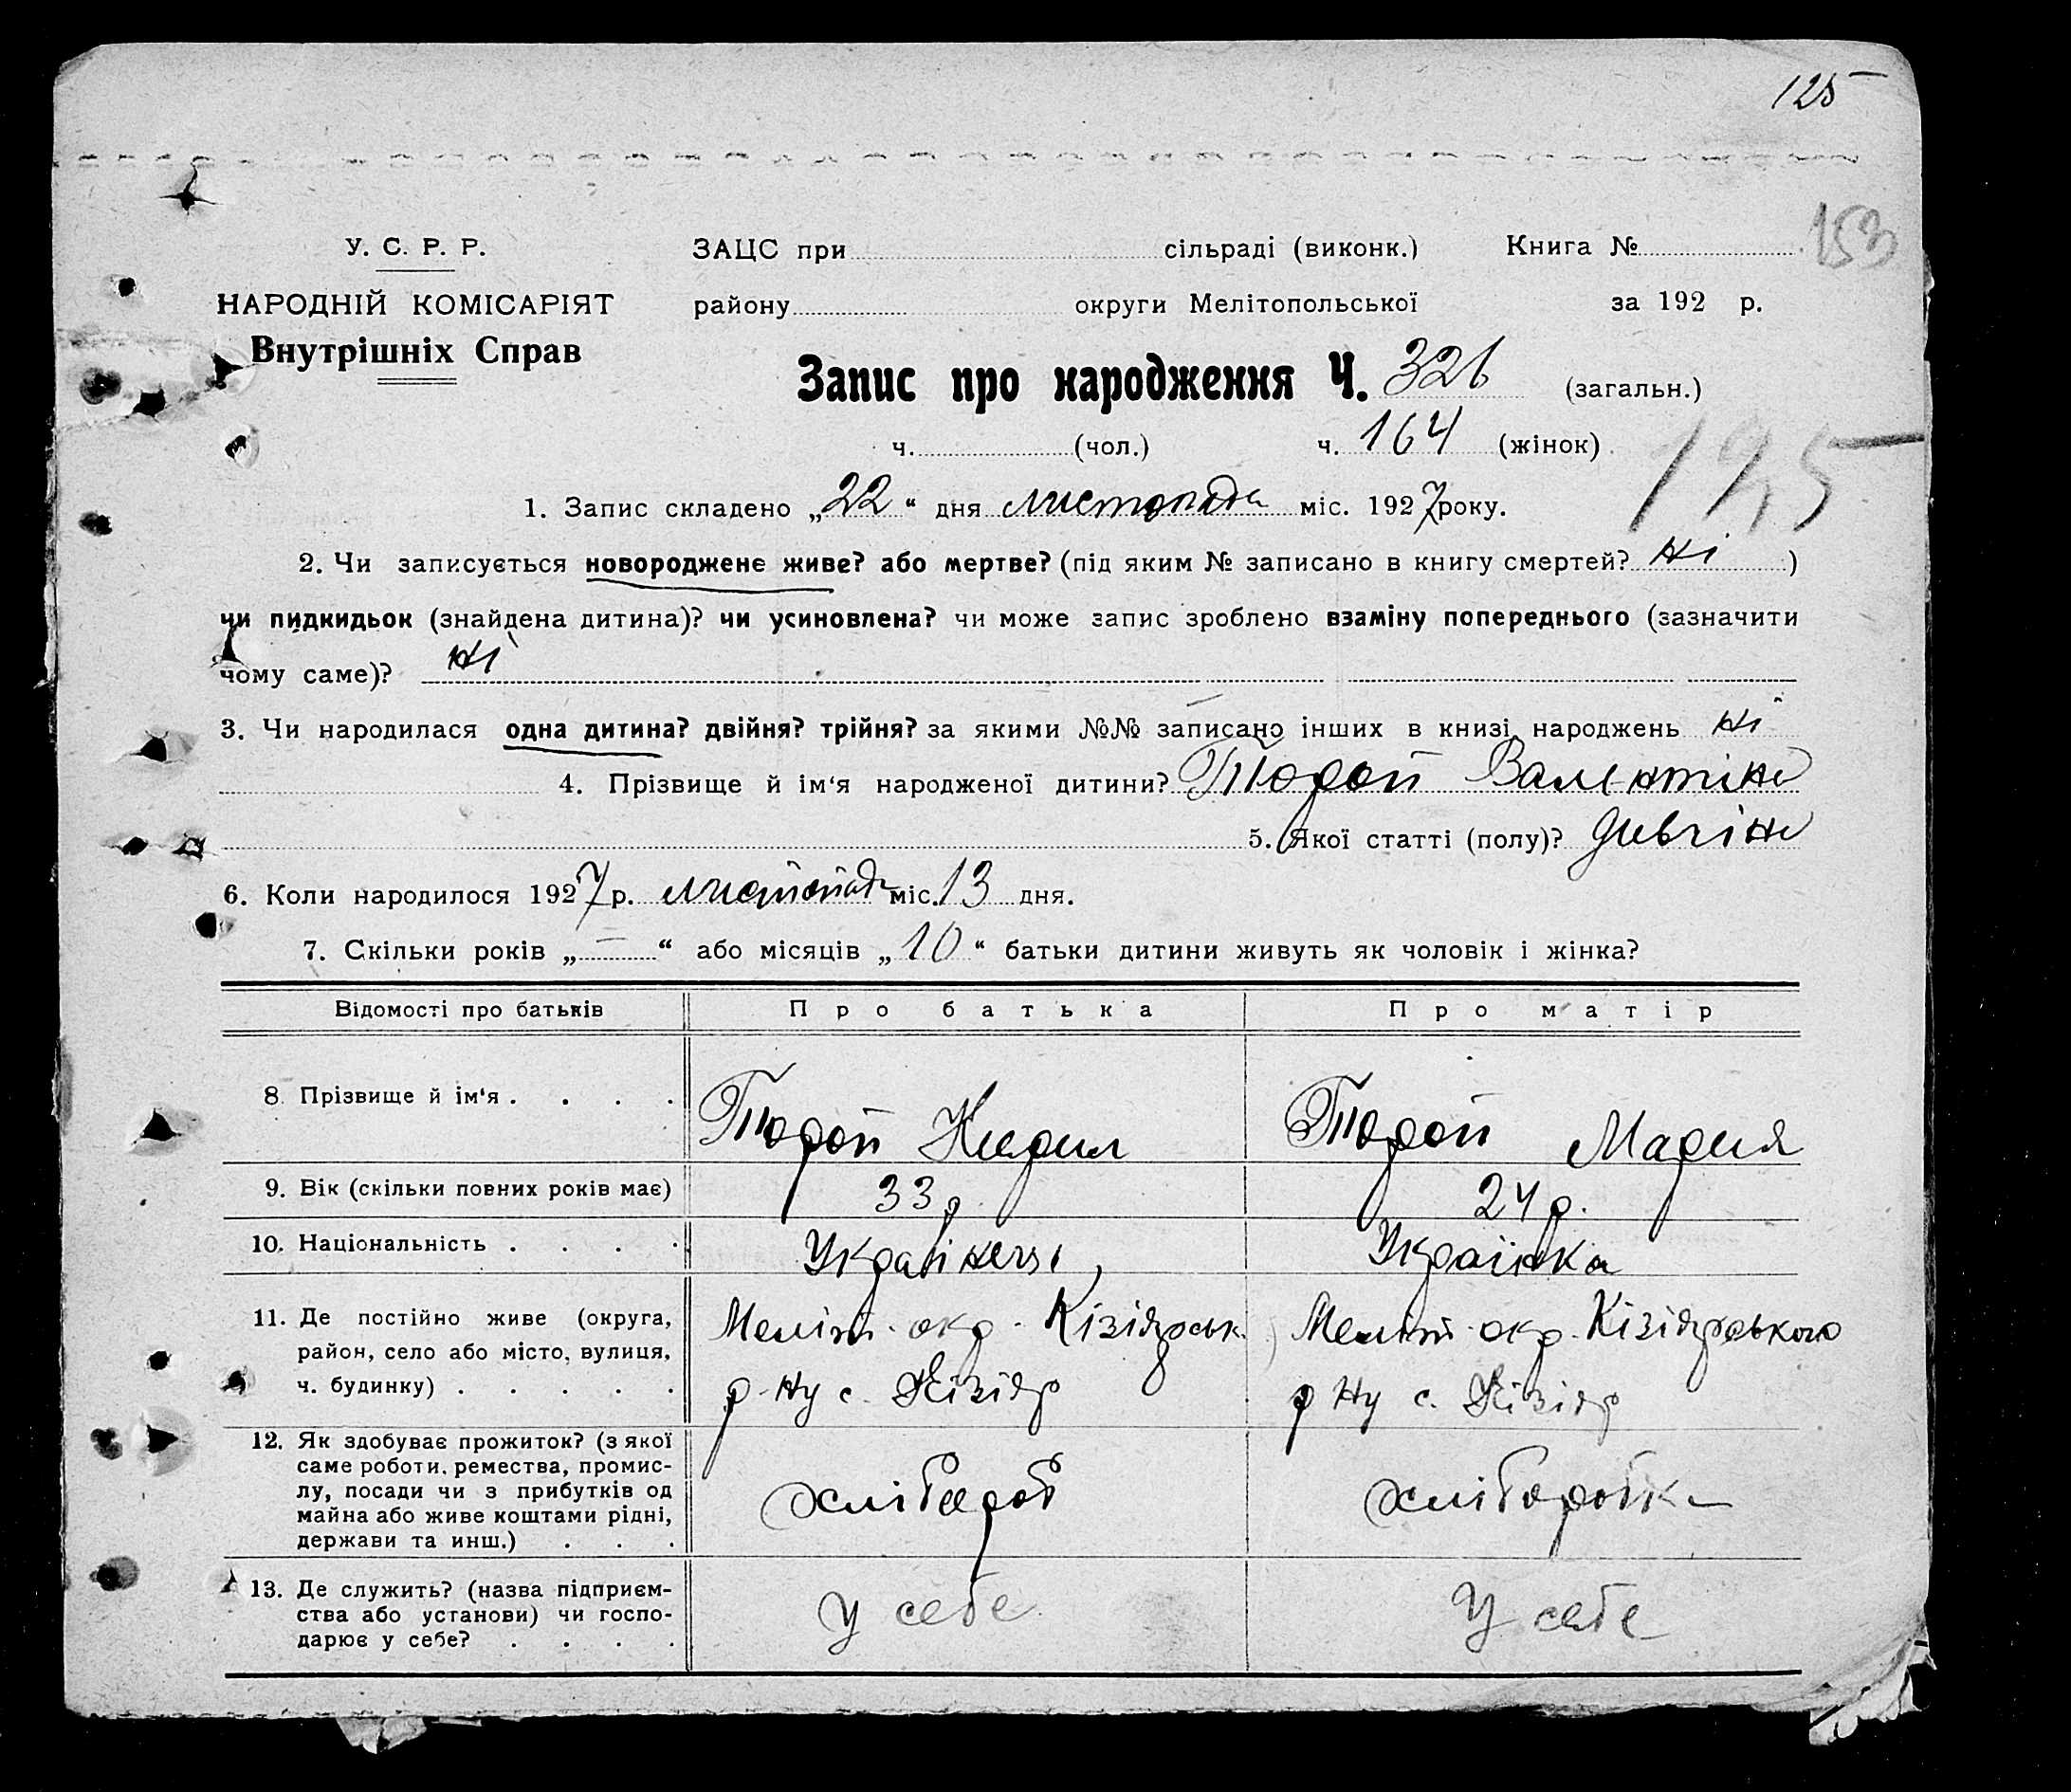 125
У. С. Р. Р.
ЗАЦС при сільраді (виконк.) Книга № 153
НАРОДНІЙ КОМІСАРІЯТ
району округи Мелітопольської за 192 р.
Внутрішніх Справ
Запис про народження Ч. 326 (загальн.)
ч. (чол.) ч. 164 (жінок)
125
1. Запис складено „22“ дня листопада міс. 1927 року.
2. Чи записується новороджене живе? або мертве? (під яким № записано в книгу смертей? Ні )
чи пидкидьок (знайдена дитина)? чи усиновлена? чи може запис зроблено взаміну попереднього (зазначити
чому саме)? Ні
3. Чи народилася одна дитина? двійня? трійня? за якими №№ записано інших в книзі народжень Ні
4. Прізвище й ім'я народженої дитини? Валентина
5. Якої статті (полу)? Дивчина
6. Коли народилося 1927 р. листопада міс. 13 дня.
7. Скільки років „—“ або місяців „10“ батьки дитини живуть як чоловік і жінка?
Відомості про батьків Про батька Про матір
8. Прізвище й ім'я . . . . Кирил Мария
9. Вік (скільки повних років має) 33 р. 24 р.
10. Національність . . . . Українець Українка
11. Де постійно живе (округа, Меліт. окр. Кізіярськ. Меліт. окр. Кізіярського
район, село або місто, вулиця,
ч. будинку) . . . . . р-ну с. Кізіяр р-ну с. Кізіяр
12. Як здобуває прожиток? (з якої
саме роботи, ремества, промис-
лу, посади чи з прибутків од хлібороб хліборобка
майна або живе коштами рідні,
держави та инш.) . . .
13. Де служить? (назва підприєм-
ства або установи) чи госпо- у себе у себе
дарює у себе? . . . .